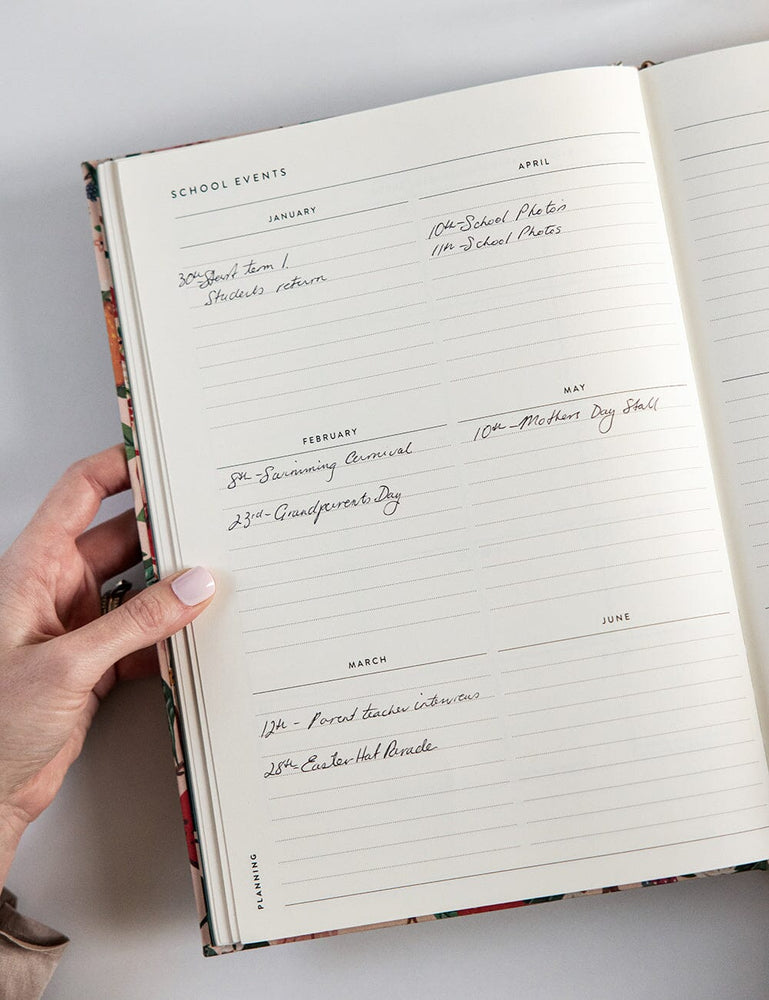 SCHOOL EVENTS
JANUARY
30th-Start term 1.
Students return
FEBRUARY
8th-Swimming Carnival
23rd-Grandparents Day
MARCH
12th - Parent teacher interviews
28th-Easter Hat Parade
APRIL
10th-School Photos
11th-School Photos
MAY
10th-Mothers Day Stall
JUNE
PLANNING